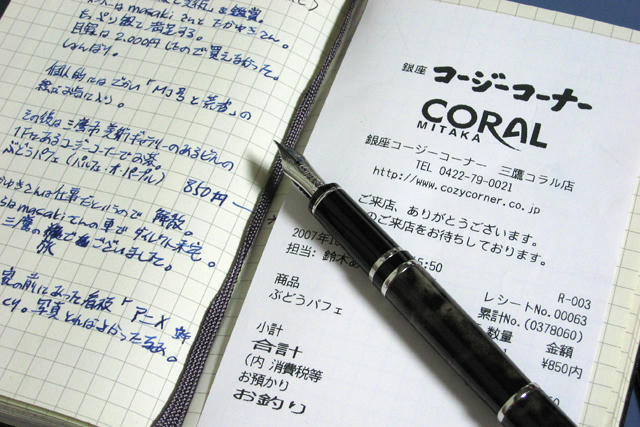 は masaki さんと たかゆきさん。
たっぷり観て満足する。
目録は 2,000円したので買えなかった。
しょんぼり。
個人的にはでかい「MJ号と荒者」の
その後は三鷹市美術ギャラリーのあるビルの
1Fにあるコージーコーナーでお茶。
ぶどうパフェ（パルフェ・オ・パープル）
850円
ゆきさんは仕事だというので 解散。
masaki さんの車で
三鷹の
旅 でございました。
家の前にあった看板「アニメ
写真とればよかった
銀座 コージーコーナー
CORAL
MITAKA
銀座コージーコーナー 三鷹コラル店
TEL 0422-79-0021
http://www.cozycorner.co.jp
ご来店、ありがとうございます。
のご来店をお待ちしております。
2007年10 5:50
担当: 鈴木あ
R-003
レシートNo.00063
累計No.(0378060)
商品 数量 金額
ぶどうパフェ ¥850内
小計
合計
(内 消費税等
お預かり
お釣り